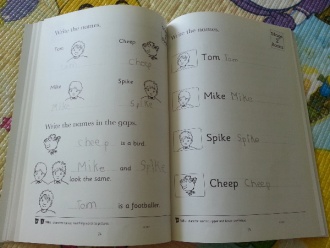 Write the names.
Tom
Cheep
Cheep
Mike
Spike
Mike
Spike
Write the names in the gaps.
Cheep is a bird
Mike and Spike
look the same.
Tom is a footballer
Write the names.
Tom Tom
Mike Mike
Spike Spike
Cheep Cheep